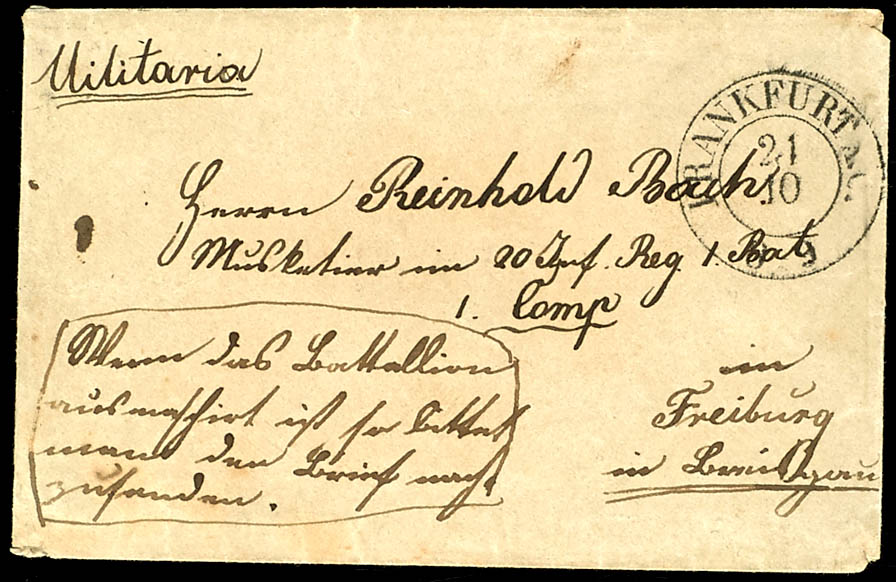 Militaria
FRANKFURT a/O.
21
10
Herrn Reinhold Bach
Musketier im 20 Inf. Reg. 1. Bat.
1. Comp
Wenn das Battallion
ausmaschirt ist so bittet
mann den Brief nach
zusenden.
in
Freiburg
in Breisgau